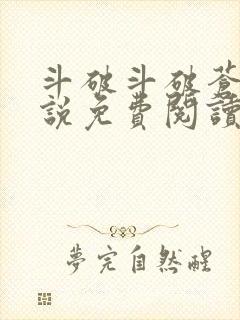 斗破斗破蒼
說免費閱讀
夢完自然醒